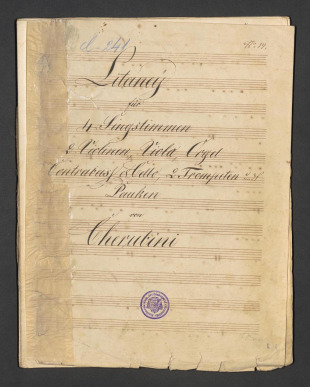 Litaney
für
4 Singstimmen
2 Violinen, Viola, Orgel
Contrabass & Cello, 2 Trompeten
Pauken
von
Cherubini